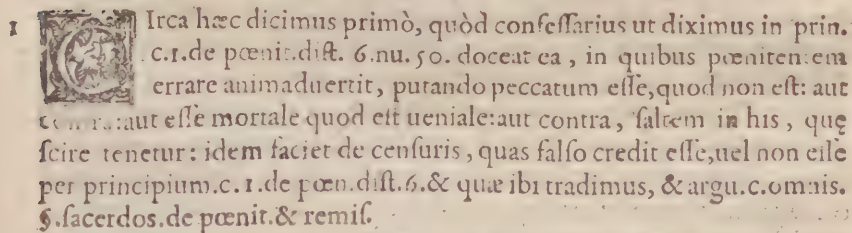 1 CIrca hæc dicimus primò, quòd confeſſarius ut diximus in prin.
c.1.de pœnit.diſt. 6.nu.50. doceat ea, in quibus pœnitentem
errare animaduertit, putando peccatum eſſe,quod non eſt: aut
contra:aut eſſe mortale quod eſt ueniale:aut contra, ſaltem in his, quę
ſcire tenetur: idem faciet de cenſuris, quas falſo credit eſſe,uel non eſſe
per principium.c.1.de pœn.diſt.6.& quæ ibi tradimus, & argu.c.omnis.
§.ſacerdos.de pœnit.& remiſ.